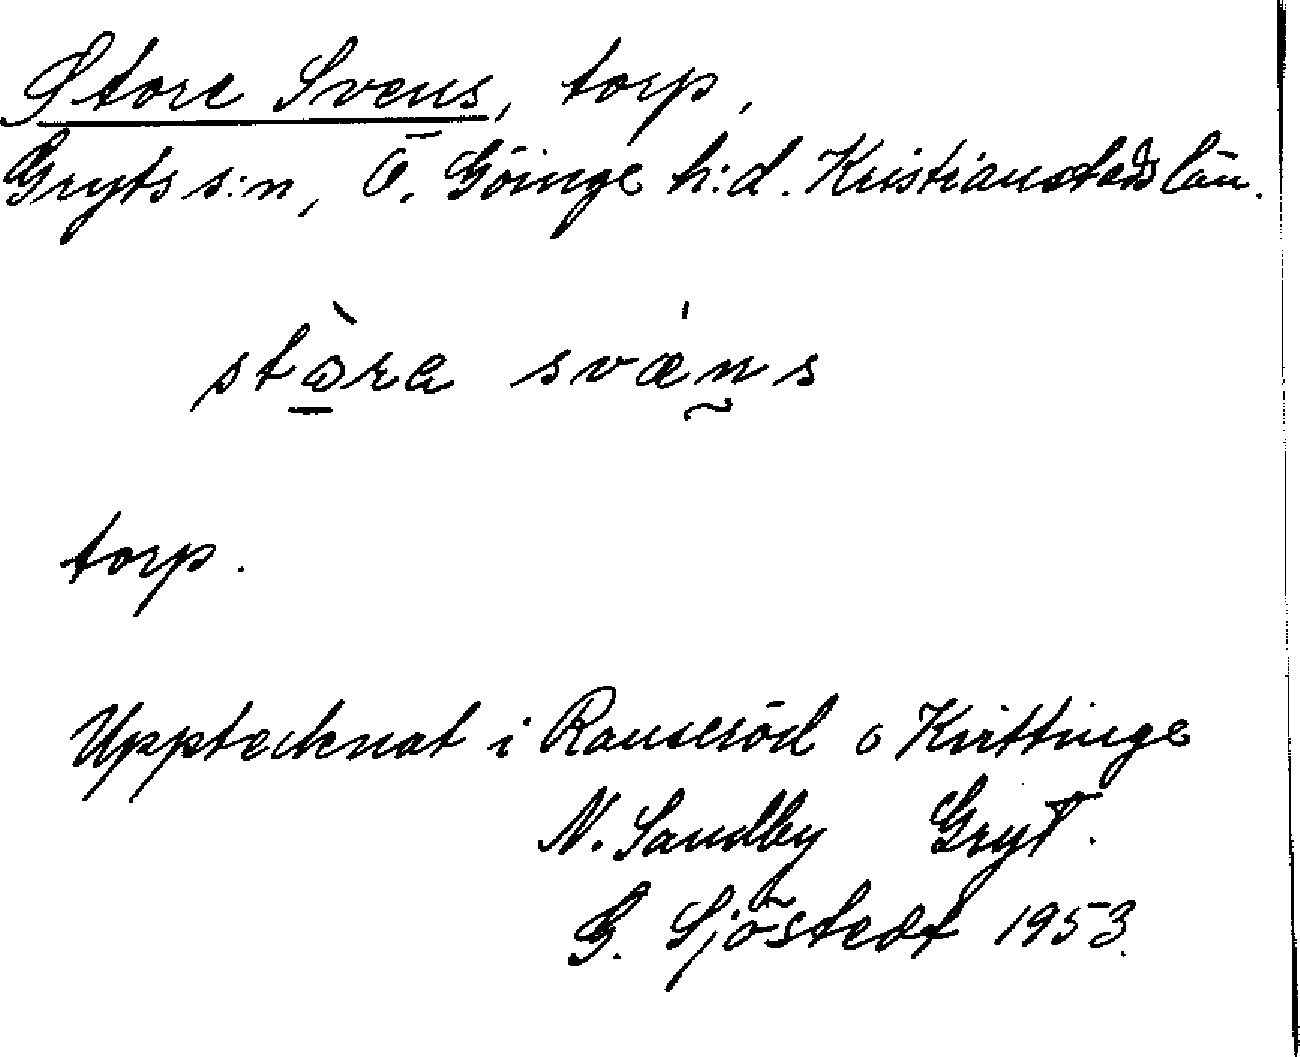 Store Svens, torp,
Gryts s:n, Ö. Göinge h:d. Kristianstads län.
stòra svǽns
torp.
Upptecknat i Rauseröd o Kvittinge
N. Sandby Gryt.
G. Sjöstedt 1953.